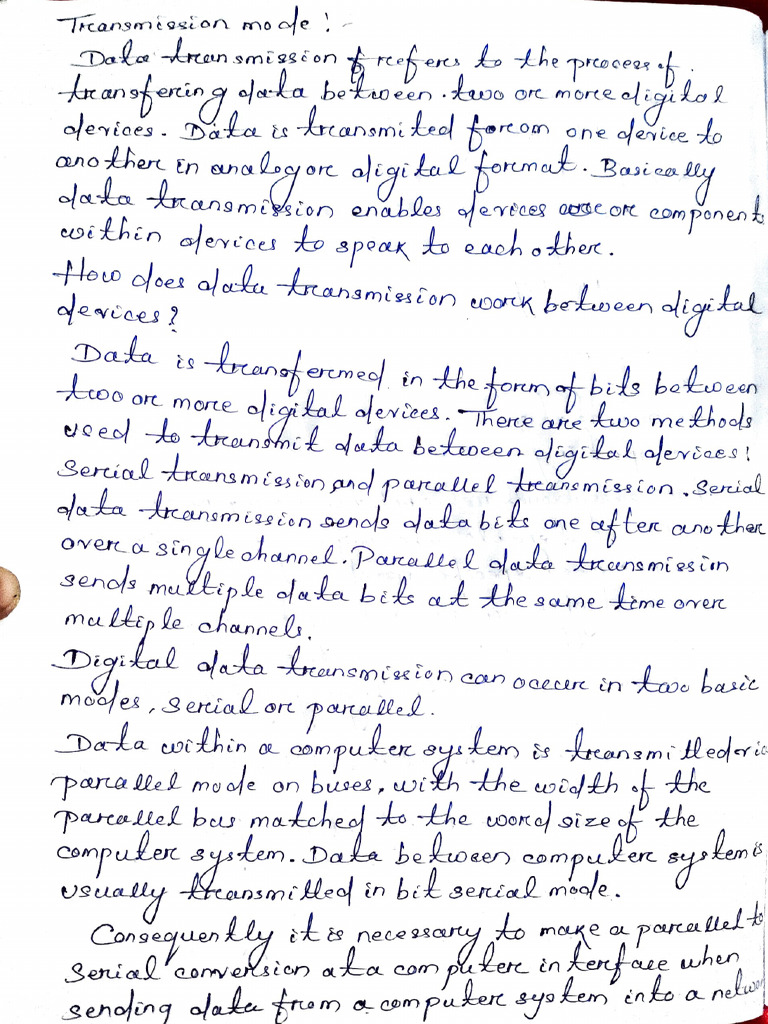 Transmission mode :-
Data transmission refers to the process of
transfering data between two or more digital
devices. Data is transmited from one device to
another in analog or digital format. Basically
data transmission enables devices or component
within devices to speak to each other.
How does data transmission work between digital
devices?
Data is transferred in the form of bits between
two or more digital devices. There are two methods
used to transmit data between digital devices:
Serial transmission and parallel transmission. Serial
data transmission sends data bits one after another
over a single channel. Parallel data transmission
sends multiple data bits at the same time over
multiple channels.
Digital data transmission can occur in two basic
modes, serial or parallel.
Data within a computer system is transmitted via
parallel mode on buses, with the width of the
parallel bus matched to the word size of the
computer system. Data between computer system is
usually transmitted in bit serial mode.
Consequently it is necessary to make a parallel to
serial conversion at a computer interface when
sending data from a computer system into a